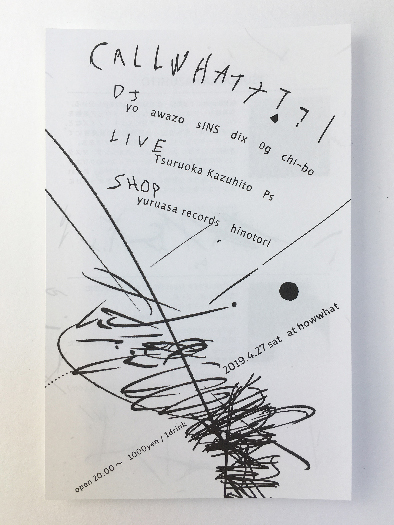 CALLWHAT??!
DJ
yo awazo sINS dix og chi-bo
LIVE
Tsuruoka Kazuhito Ps
SHOP
yuruasa records hinotori
2019.4.27 sat at howwhat
open 20:00～ 1000yen / 1drink